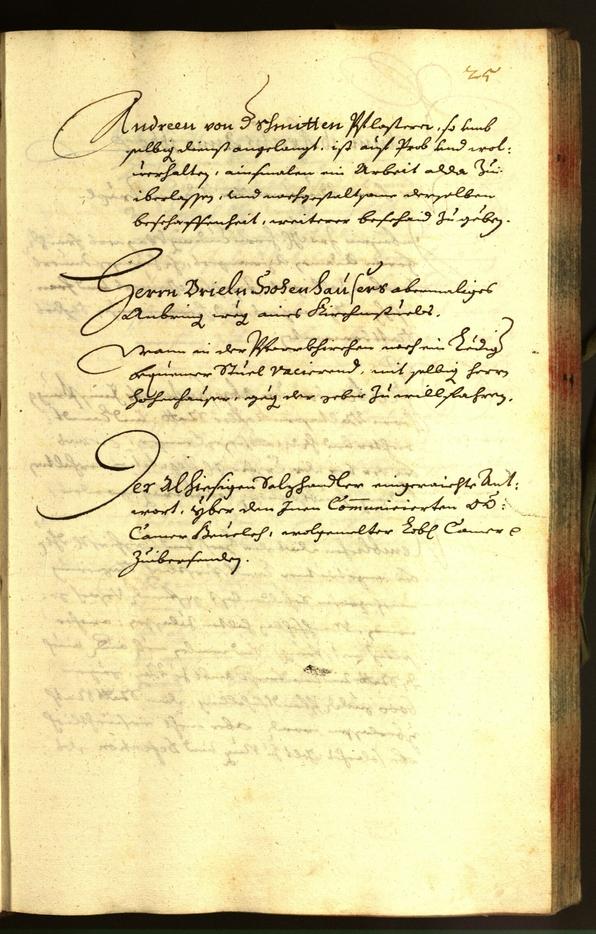 25
Andreen von Dschmitten Pflasterer, so umb
selbig dienst angelangt, ist auf Prob und wol-
verhalten, ainsmalen ein Arbeit alda zu
iberlassen, und nachgestaltsame derselben
beschaffenheit, weiterer beschaid zu geben.
Herrn Hohenhausers abermaliges
Anbring weg aines Kirchenstuels.
Wann in der Pfarrkhirchen noch ein Ledig
bequemer Stuel vacierend, mit selbig herrn
Hohenhauser, geg der gebir zu willfahren.
Der Alhiesigen Salzhandler eingeraichte Ant-
wort, yber den Inen Communicierten OÖ:
Camer Bevelch, wolgemelter Lobl Camer
zuübersenden.